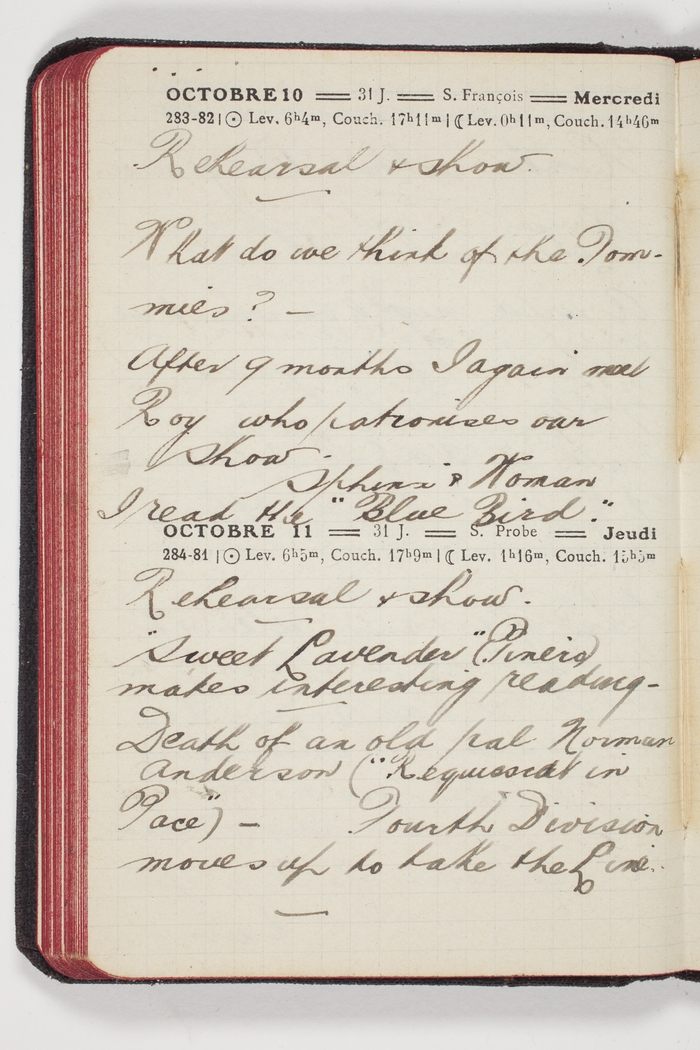 OCTOBRE 10 == 31 J. == S. François == Mercredi
283-82 | ☉ Lev. 6h4m, Couch. 17h11m | ☾ Lev. 0h11m, Couch. 14h46m
Rehearsal & show.
What do we think of the Tom-
mies? —
After 9 months I again meet
Roy who patronises our
show.
Sphinx & Woman
I read the "Blue Bird".
OCTOBRE 11 == 31 J. == S. Probe == Jeudi
284-81 | ☉ Lev. 6h5m, Couch. 17h9m | ☾ Lev. 1h16m, Couch. 15h5m
Rehearsal & show.
"Sweet Lavender" (Pinero)
makes interesting reading -
Death of an old pal Norman
Anderson ("Requiescat in
Pace") — Fourth Division
moves up to take the Line.